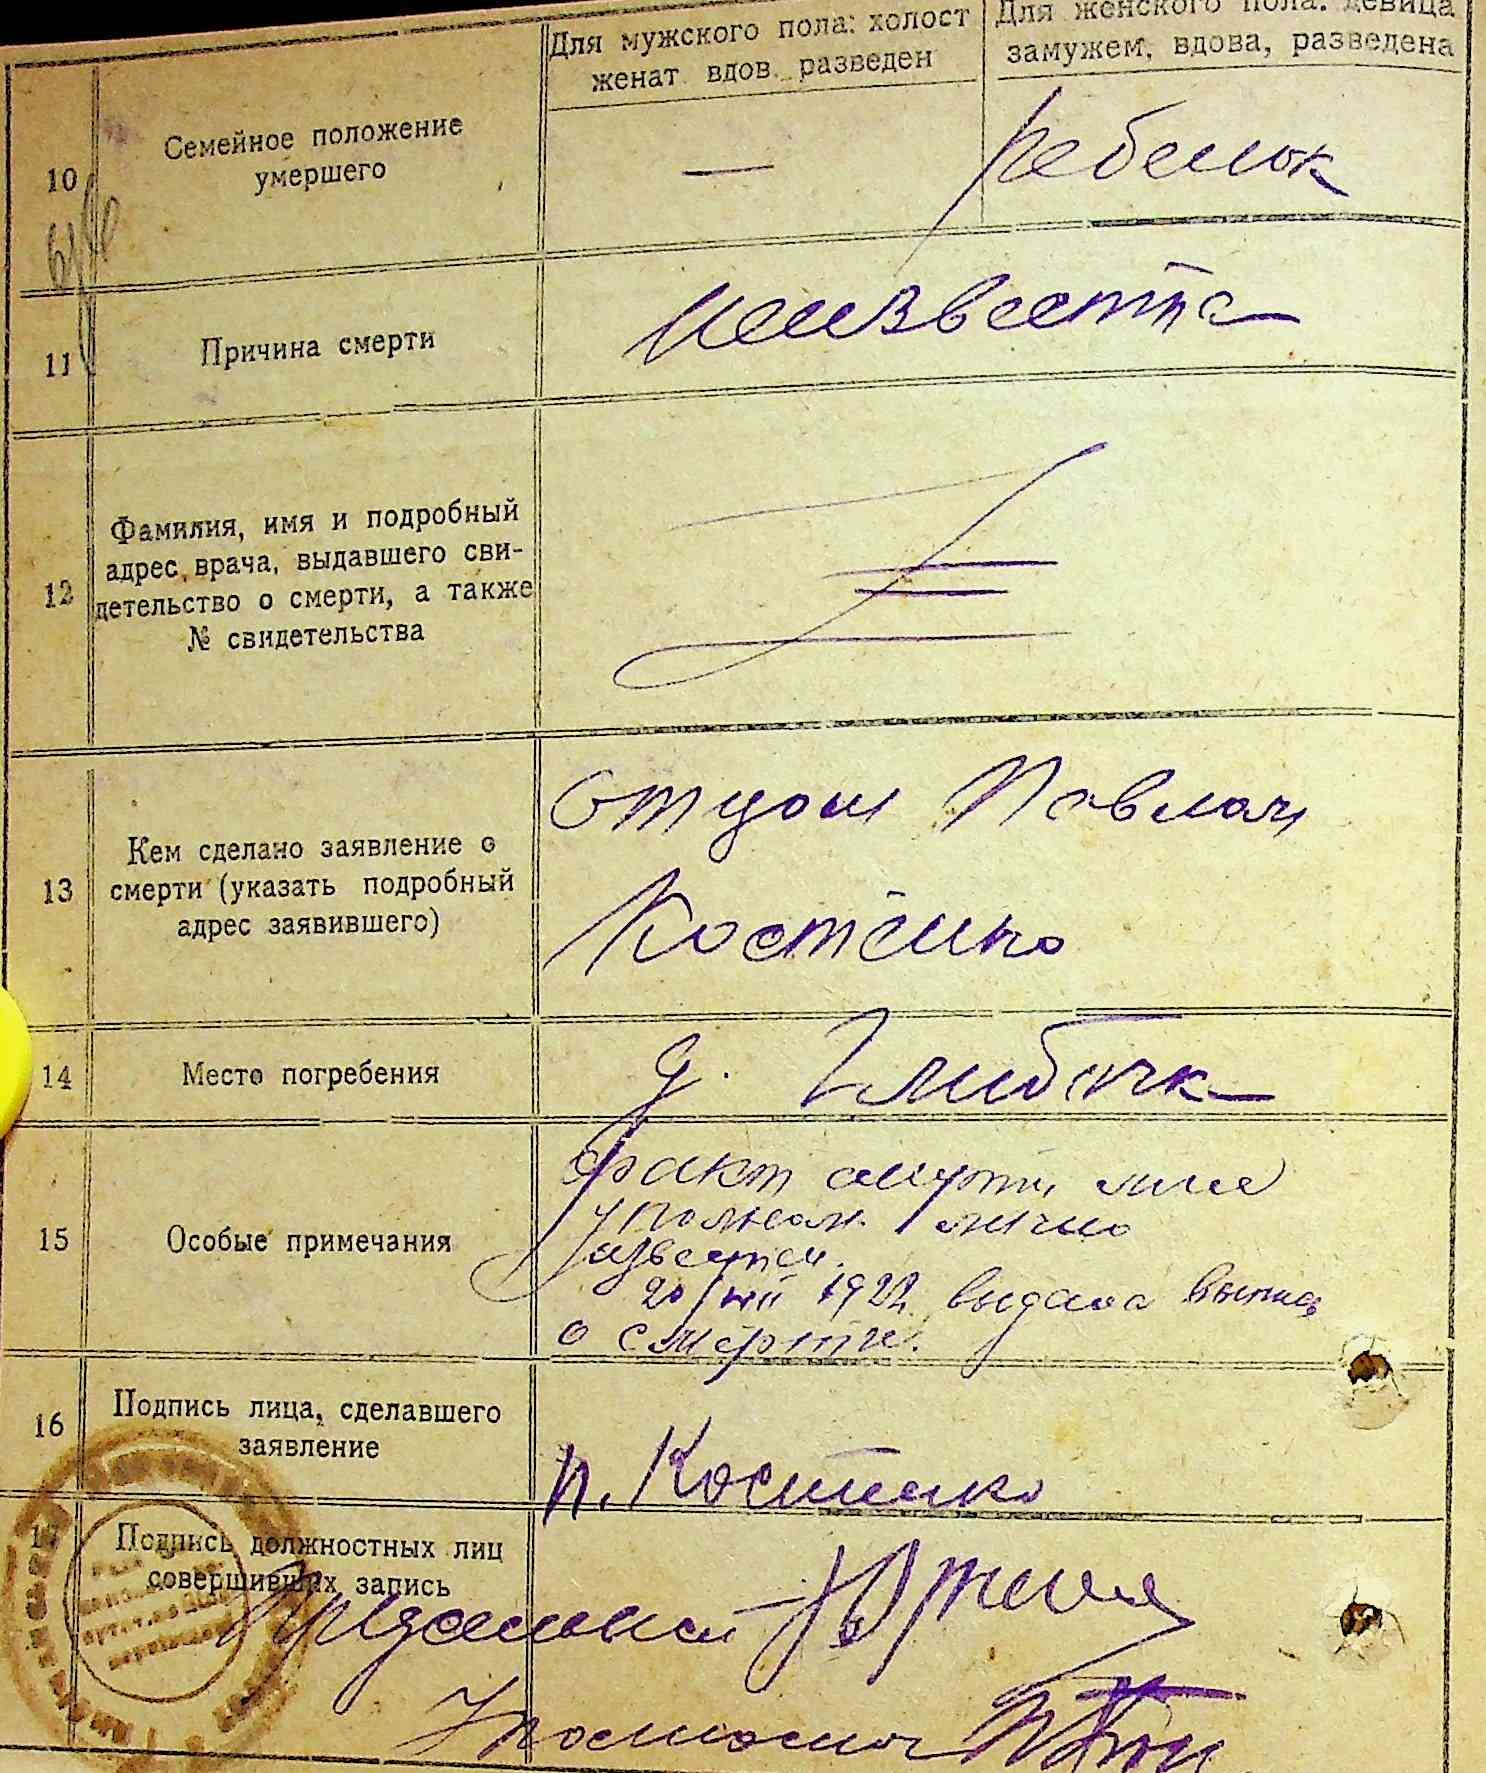 Для мужского пола: холост
женат вдов разведен
Для женского пола: девица
замужем, вдова, разведена
10
Семейное положение
умершего
—
ребенок
11
Причина смерти
неизвестна
12
Фамилия, имя и подробный
адрес врача, выдавшего сви-
детельство о смерти, а также
№ свидетельства
13
Кем сделано заявление о
смерти (указать подробный
адрес заявившего)
отцом Павлом
Костенко
14
Место погребения
д.
15
Особые примечания
факт смерти мне
лично
известен.
20/VIII 1922 выдана выпись
о смерти.
16
Подпись лица, сделавшего
заявление
П. Костенко
17
Подпись должностных лиц
совершивших запись